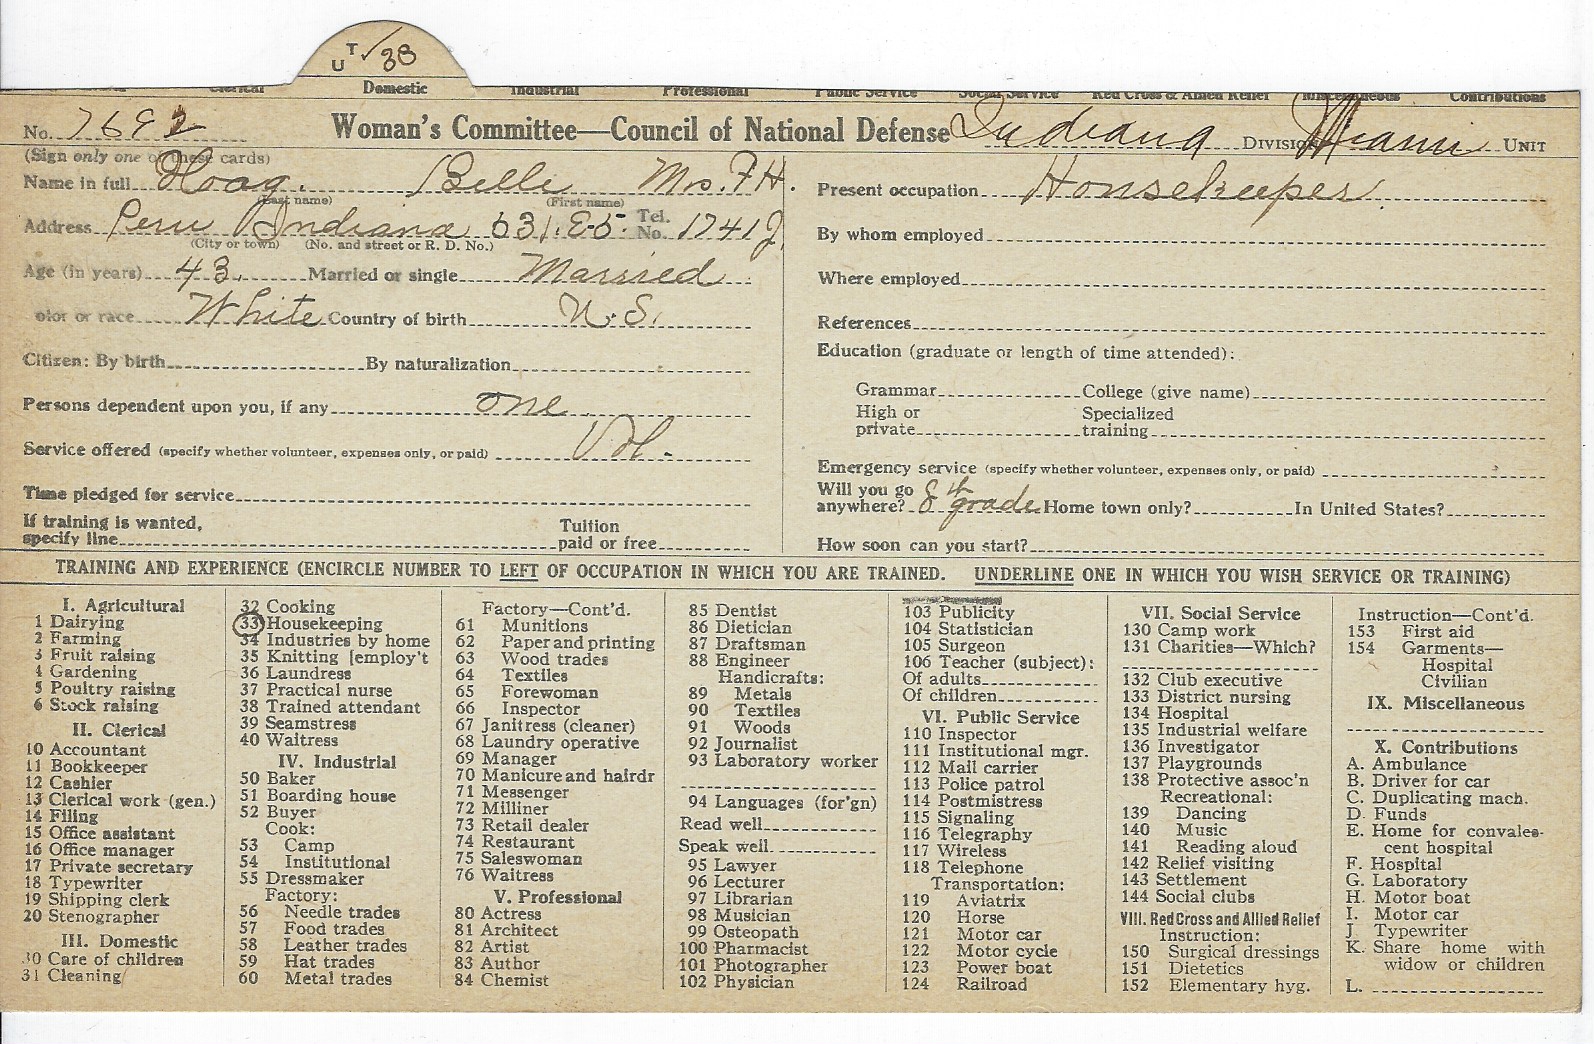 UT✓38
Clerical Domestic Industrial Professional Public Service Social Service Red Cross & Allied Relief Miscellaneous Contributions
No. 7692 Woman's Committee—Council of National Defense Indiana Division Miami Unit
(Sign only one of these cards)
Name in full Hoag. Belle Mrs. F H.
(Last name) (First name)
Address Peru Indiana 631. E-5. Tel. No. 1741 J
(City or town) (No. and street or R. D. No.)
Age (in years) 43. Married or single Married
olor or race White Country of birth U.S.
Citizen: By birth By naturalization
Persons dependent upon you, if any one
Service offered (specify whether volunteer, expenses only, or paid) Vol.
Time pledged for service
If training is wanted, Tuition
specify line paid or free
Present occupation Housekeeper
By whom employed
Where employed
References
Education (graduate or length of time attended):
Grammar College (give name)
High or Specialized
private training
Emergency service (specify whether volunteer, expenses only, or paid)
Will you go
anywhere? 8th grade Home town only? In United States?
How soon can you start?
TRAINING AND EXPERIENCE (ENCIRCLE NUMBER TO LEFT OF OCCUPATION IN WHICH YOU ARE TRAINED. UNDERLINE ONE IN WHICH YOU WISH SERVICE OR TRAINING)
I. Agricultural
1 Dairying
2 Farming
3 Fruit raising
4 Gardening
5 Poultry raising
6 Stock raising
II. Clerical
10 Accountant
11 Bookkeeper
12 Cashier
13 Clerical work (gen.)
14 Filing
15 Office assistant
16 Office manager
17 Private secretary
18 Typewriter
19 Shipping clerk
20 Stenographer
III. Domestic
30 Care of children
31 Cleaning
32 Cooking
33 Housekeeping
34 Industries by home
35 Knitting [employ't
36 Laundress
37 Practical nurse
38 Trained attendant
39 Seamstress
40 Waitress
IV. Industrial
50 Baker
51 Boarding house
52 Buyer
Cook:
53 Camp
54 Institutional
55 Dressmaker
Factory:
56 Needle trades
57 Food trades
58 Leather trades
59 Hat trades
60 Metal trades
Factory—Cont'd.
61 Munitions
62 Paper and printing
63 Wood trades
64 Textiles
65 Forewoman
66 Inspector
67 Janitress (cleaner)
68 Laundry operative
69 Manager
70 Manicure and hairdr
71 Messenger
72 Milliner
73 Retail dealer
74 Restaurant
75 Saleswoman
76 Waitress
V. Professional
80 Actress
81 Architect
82 Artist
83 Author
84 Chemist
85 Dentist
86 Dietician
87 Draftsman
88 Engineer
Handicrafts:
89 Metals
90 Textiles
91 Woods
92 Journalist
93 Laboratory worker
94 Languages (for'gn)
Read well
Speak well
95 Lawyer
96 Lecturer
97 Librarian
98 Musician
99 Osteopath
100 Pharmacist
101 Photographer
102 Physician
103 Publicity
104 Statistician
105 Surgeon
106 Teacher (subject):
Of adults
Of children
VI. Public Service
110 Inspector
111 Institutional mgr.
112 Mail carrier
113 Police patrol
114 Postmistress
115 Signaling
116 Telegraphy
117 Wireless
118 Telephone
Transportation:
119 Aviatrix
120 Horse
121 Motor car
122 Motor cycle
123 Power boat
124 Railroad
VII. Social Service
130 Camp work
131 Charities—Which?
132 Club executive
133 District nursing
134 Hospital
135 Industrial welfare
136 Investigator
137 Playgrounds
138 Protective assoc'n
Recreational:
139 Dancing
140 Music
141 Reading aloud
142 Relief visiting
143 Settlement
144 Social clubs
VIII. Red Cross and Allied Relief
Instruction:
150 Surgical dressings
151 Dietetics
152 Elementary hyg.
Instruction—Cont'd.
153 First aid
154 Garments—
Hospital
Civilian
IX. Miscellaneous
X. Contributions
A. Ambulance
B. Driver for car
C. Duplicating mach.
D. Funds
E. Home for convales-
cent hospital
F. Hospital
G. Laboratory
H. Motor boat
I. Motor car
J. Typewriter
K. Share home with
widow or children
L.